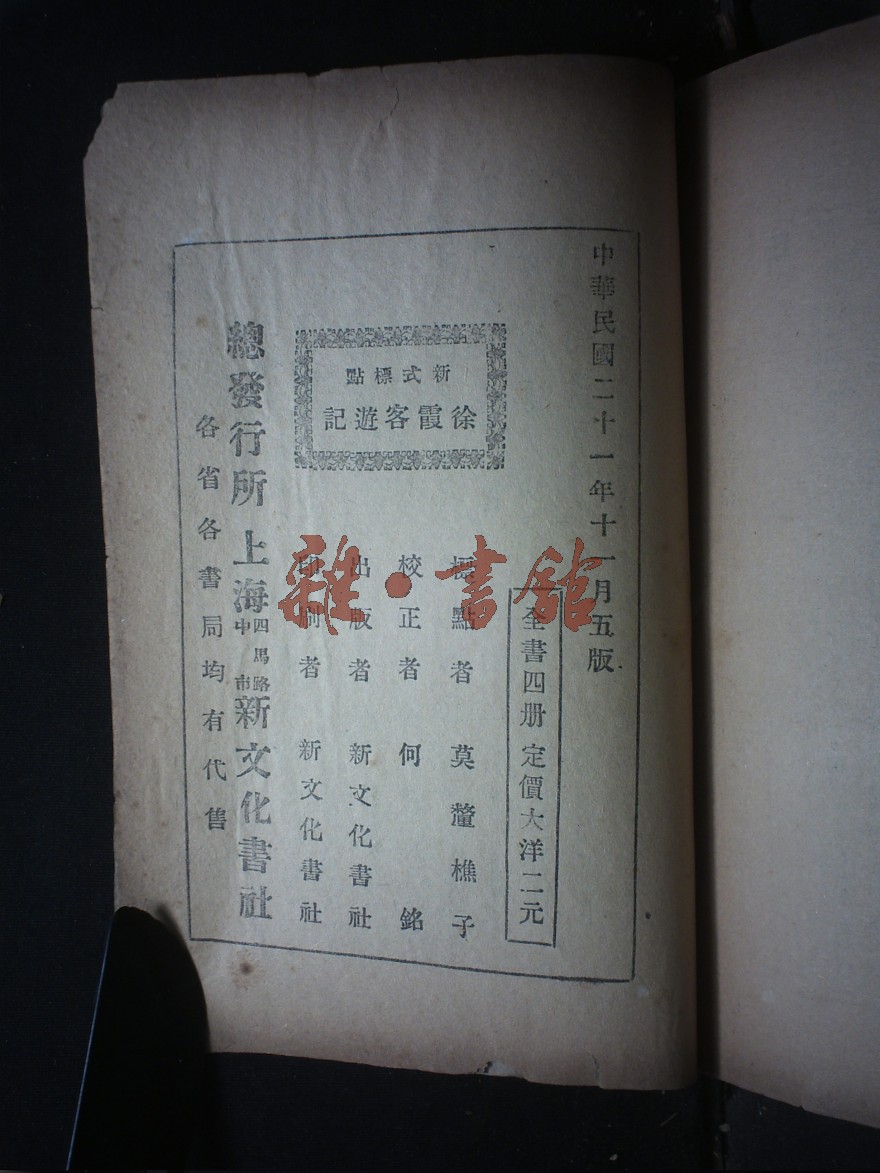 中華民國二十一年十一月五版
全書四册 定價大洋二元
新式標點
徐霞客遊記
標點者 莫釐樵子
校正者 何銘
出版者 新文化書社
印刷者 新文化書社
總發行所 上海四馬路中市 新文化書社
各省各書局均有代售
雜·書館